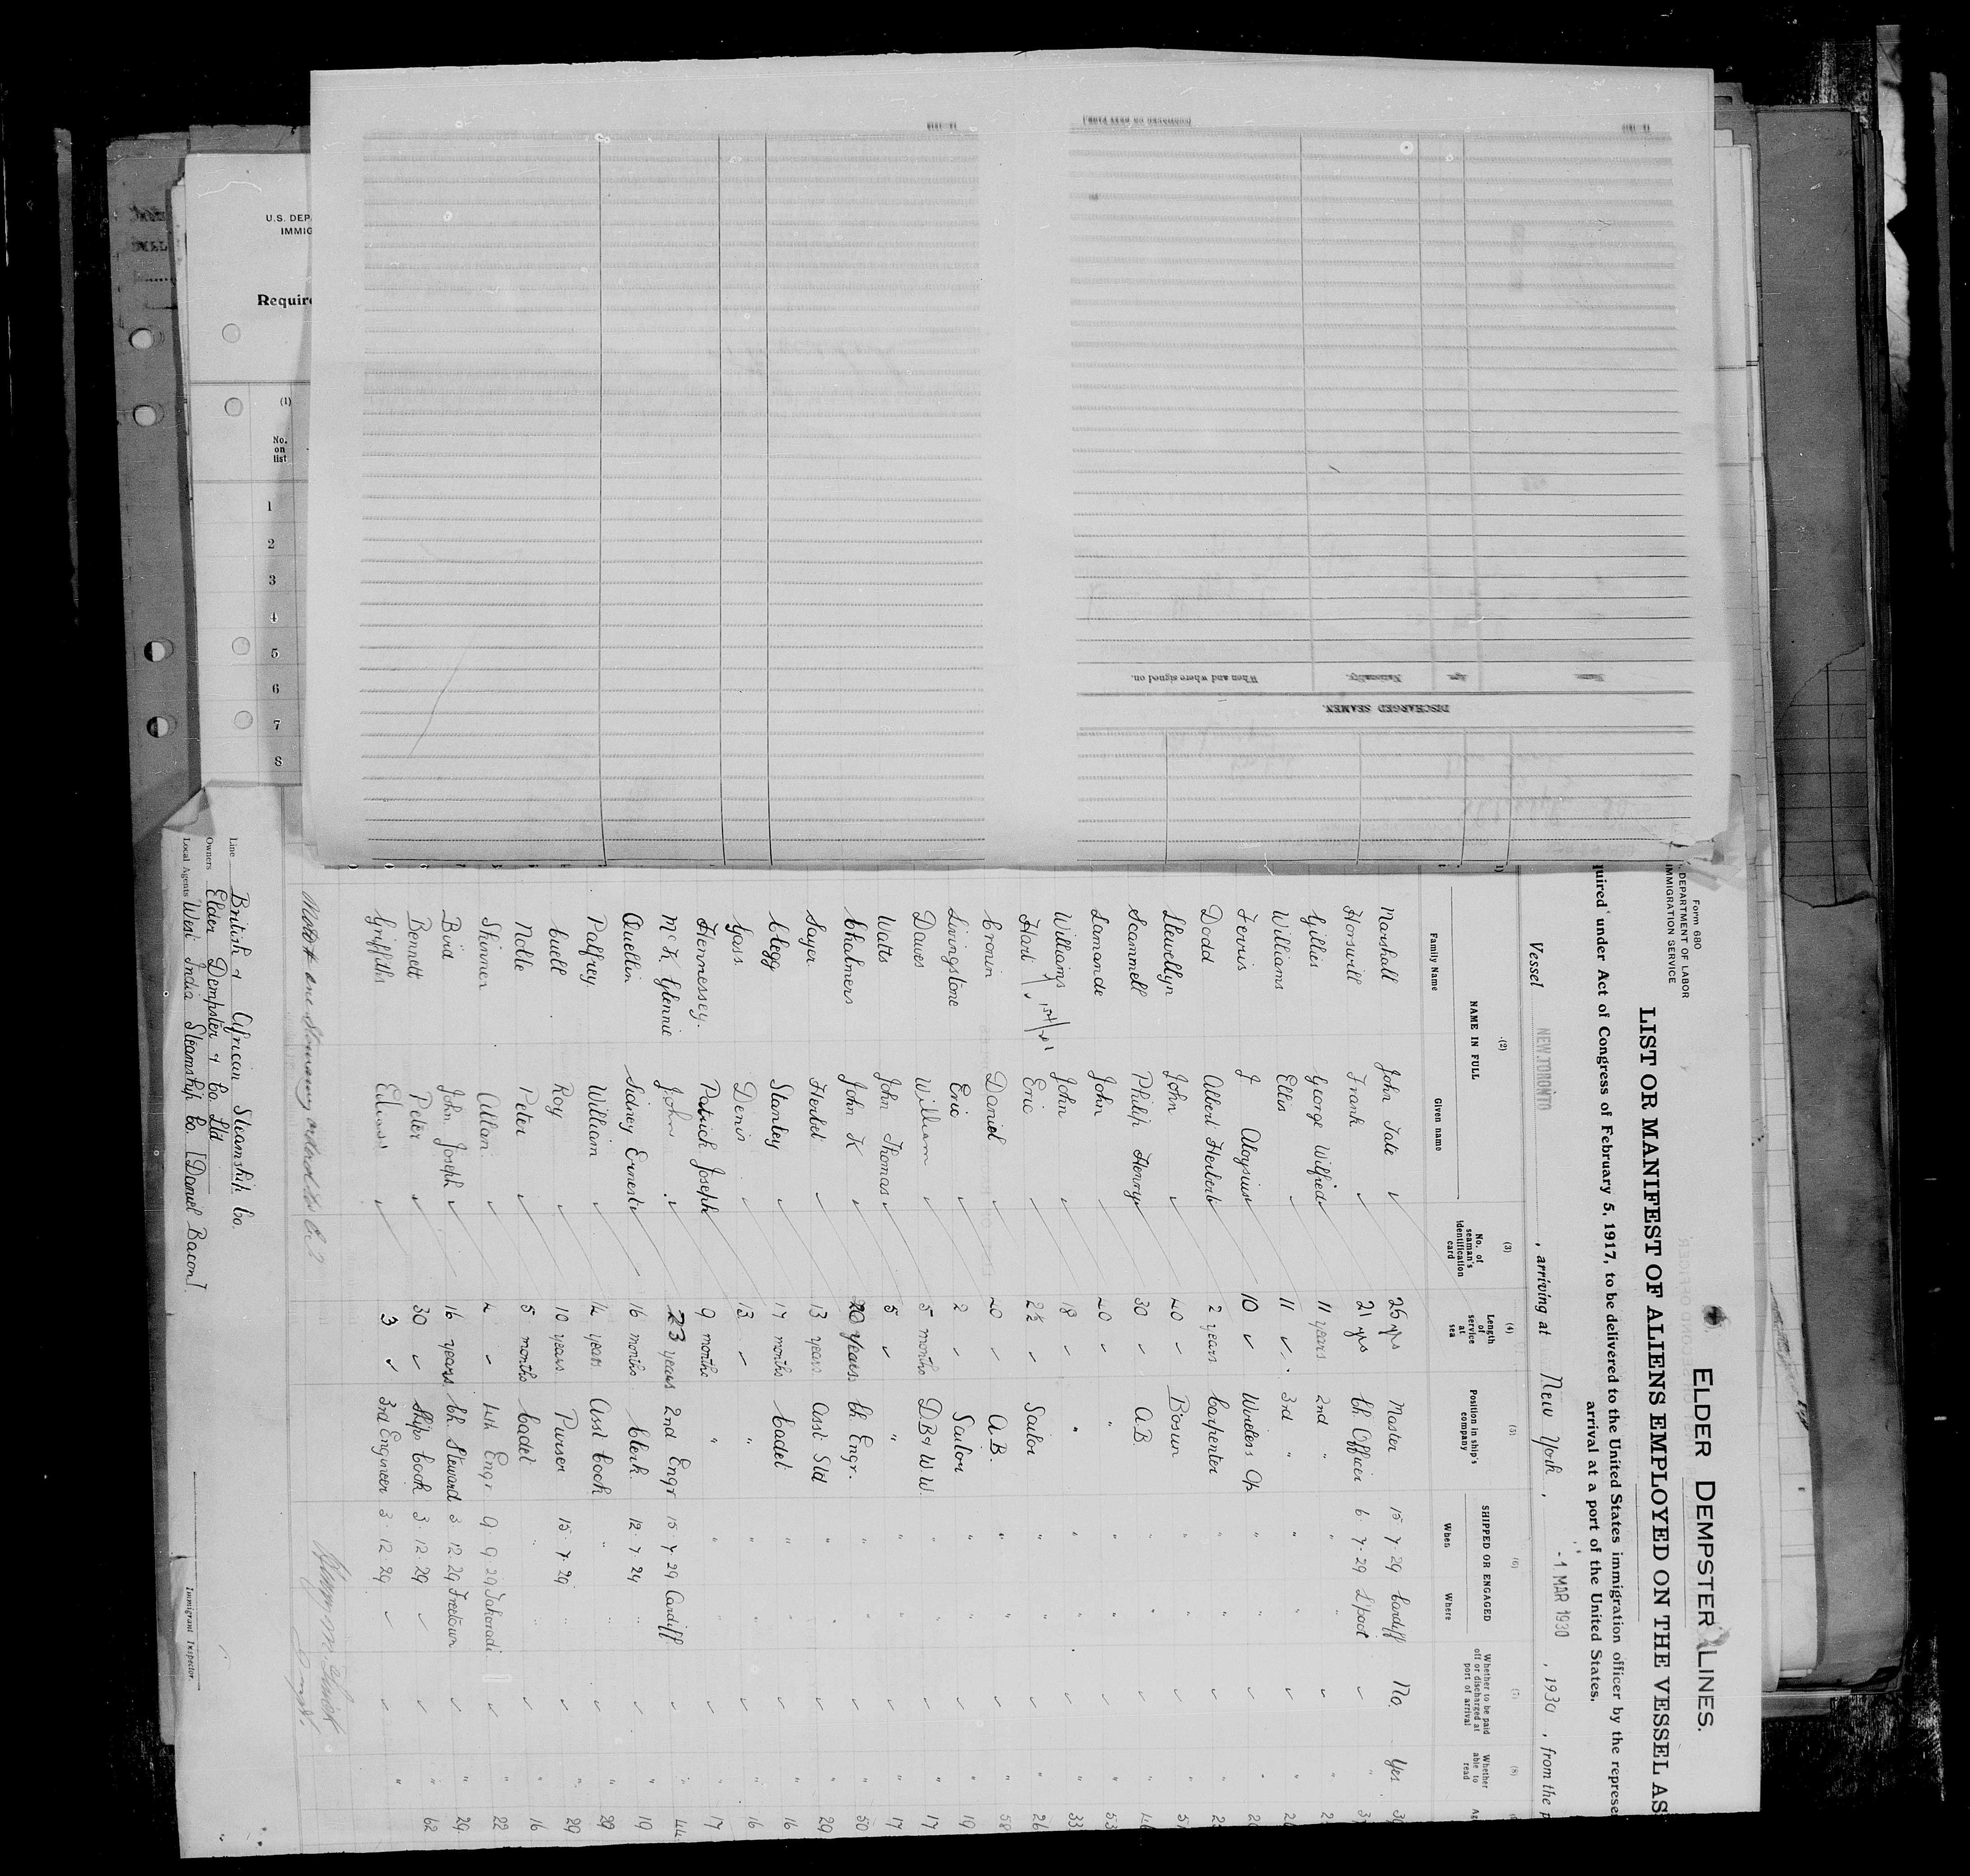 ELDER DEMPSTER LINES.
Form 680
U.S. DEPARTMENT OF LABOR
IMMIGRATION SERVICE
LIST OR MANIFEST OF ALIENS EMPLOYED ON THE VESSEL AS
quired under Act of Congress of February 5, 1917, to be delivered to the United States immigration officer by the represe
arrival at a port of the United States.
Vessel NEW TORONTO , arriving at New York , - 1 MAR 1930 , 1930 , from the p
(2) (3) (4) (5) (6) (7) (8)
NAME IN FULL No. of seaman's identification card Length of service at sea Position in ship's company SHIPPED OR ENGAGED Whether to be paid off or discharged at port of arrival Whether able to read Ag
Family Name Given name When Where
Marshall John Tate ✓ 25 yrs Master 15 7 29 Cardiff No. Yes
Horswill Frank ✓ 21 yrs Ch Officer 6 7 29 L'pool ✓ "
Gillies George Wilfred ✓ 11 years 2nd " " " ✓ "
Williams Ellis ✓ 11 ✓ 3rd " " " ✓ "
Ferris J Aloysius ✓ 10 ✓ Wireless Op " " ✓ "
Dodd Albert Herbert ✓ 2 years Carpenter " " ✓ "
Llewellyn John ✓ 40 ✓ Bosun " " ✓ "
Scammell Philip Henry ✓ 30 ✓ A.B " " ✓ "
Lamande John ✓ 40 ✓ " " " ✓ 53
Williams John ✓ 18 ✓ " " " ✓ " 33
Hart Eric ✓ 2½ ✓ Sailor " " ✓ " 26
Cronin Daniel ✓ 40 ✓ A.B. " " ✓ " 58
Livingstone Eric ✓ 2 ✓ Sailor " " ✓ " 19
Dawes William ✓ 5 months D.B & W.W. " " ✓ " 17
Watts John Thomas ✓ 5 ✓ " " " ✓ " 17
Chalmers John K ✓ 20 years Ch Engr. " " ✓ " 50
Sayer Herbet ✓ 13 years Asst Std " " ✓ " 29
Clegg Stanley ✓ 17 months Cadet " " ✓ " 16
Gass Denis ✓ 13 ✓ " " " ✓ " 16
Hennessey. Patrick Joseph ✓ 9 months " " " ✓ " 17
McK Glennie John ✓ 23 years 2nd Engr 15 7 29 Cardiff ✓ " 44
Quellin Sidney Ernest ✓ 16 months Clerk 12 7 29 " ✓ " 19
Palfrey William ✓ 14 years Asst Cook " " ✓ " 29
Cuell Roy ✓ 10 years Purser 15 7 29 " ✓ " 29
Nolte Peter ✓ 5 months Cadet " " ✓ " 16
Skinner Allan ✓ 4 ✓ 4th Engr 9 9 29 Takoradi ✓ " 22
Boid John Joseph ✓ 16 years Ch Steward 3 12 29 Freetown ✓ " 29
Bennett Peter ✓ 30 ✓ Ships Cook 3 12 29 ✓ ✓ " 62
Griffiths ✓ 3 ✓ 3rd Engineer 3 12 29 ✓ ✓ "
Line British & African Steamship Co.
Owners Elder Dempster & Co Ltd
Local Agents West India Steamship Co. [Daniel Bacon]
Immigrant Inspector.
DISCHARGED SEAMEN.
Name. Age. Nationality. When and where signed on.
U.S. DEP
IMMIG
Require
(1)
No. on list
1
2
3
4
5
6
7
8